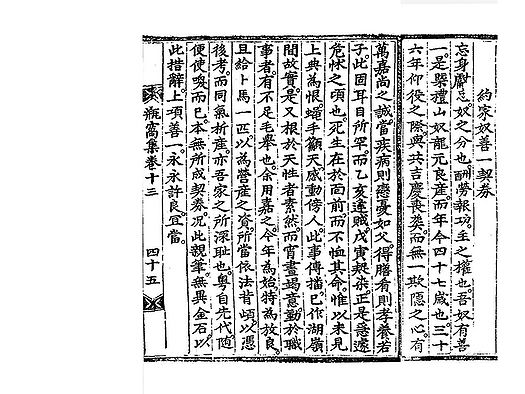 約家奴善一契券
忘身酬忌奴之分也酬勞報功主之權也吾奴有善
一是舉禮山奴龍元良産而年今四十七歲也三十
六年仰役之際與共吉慶喪葬而無一欺隱之心有
萬嘉尚之誠當疾病則戀憂如父得膳肴則孝養若
子此固耳目所罕而乙亥逢賊戊寅
危怵之項也死生在於面前而不恤其命惟以未見
上典為恨蟋手籲天感動傍人此事傳播已作湖嶺
間故實是又根於天性者素然而宵晝蝎意勤於職
事者有不足毛舉也余用嘉之今年為始特為放良
且給卜馬一匹以為營産之資所當依法昔頃以憑
後考而同氣析産亦吾家之所深恥也粤自先代隨
便使喚而已本無所成契券況此親筆無異金石以
此措辭上項善一永永許良宜當
瓶窩集卷十三
四十五